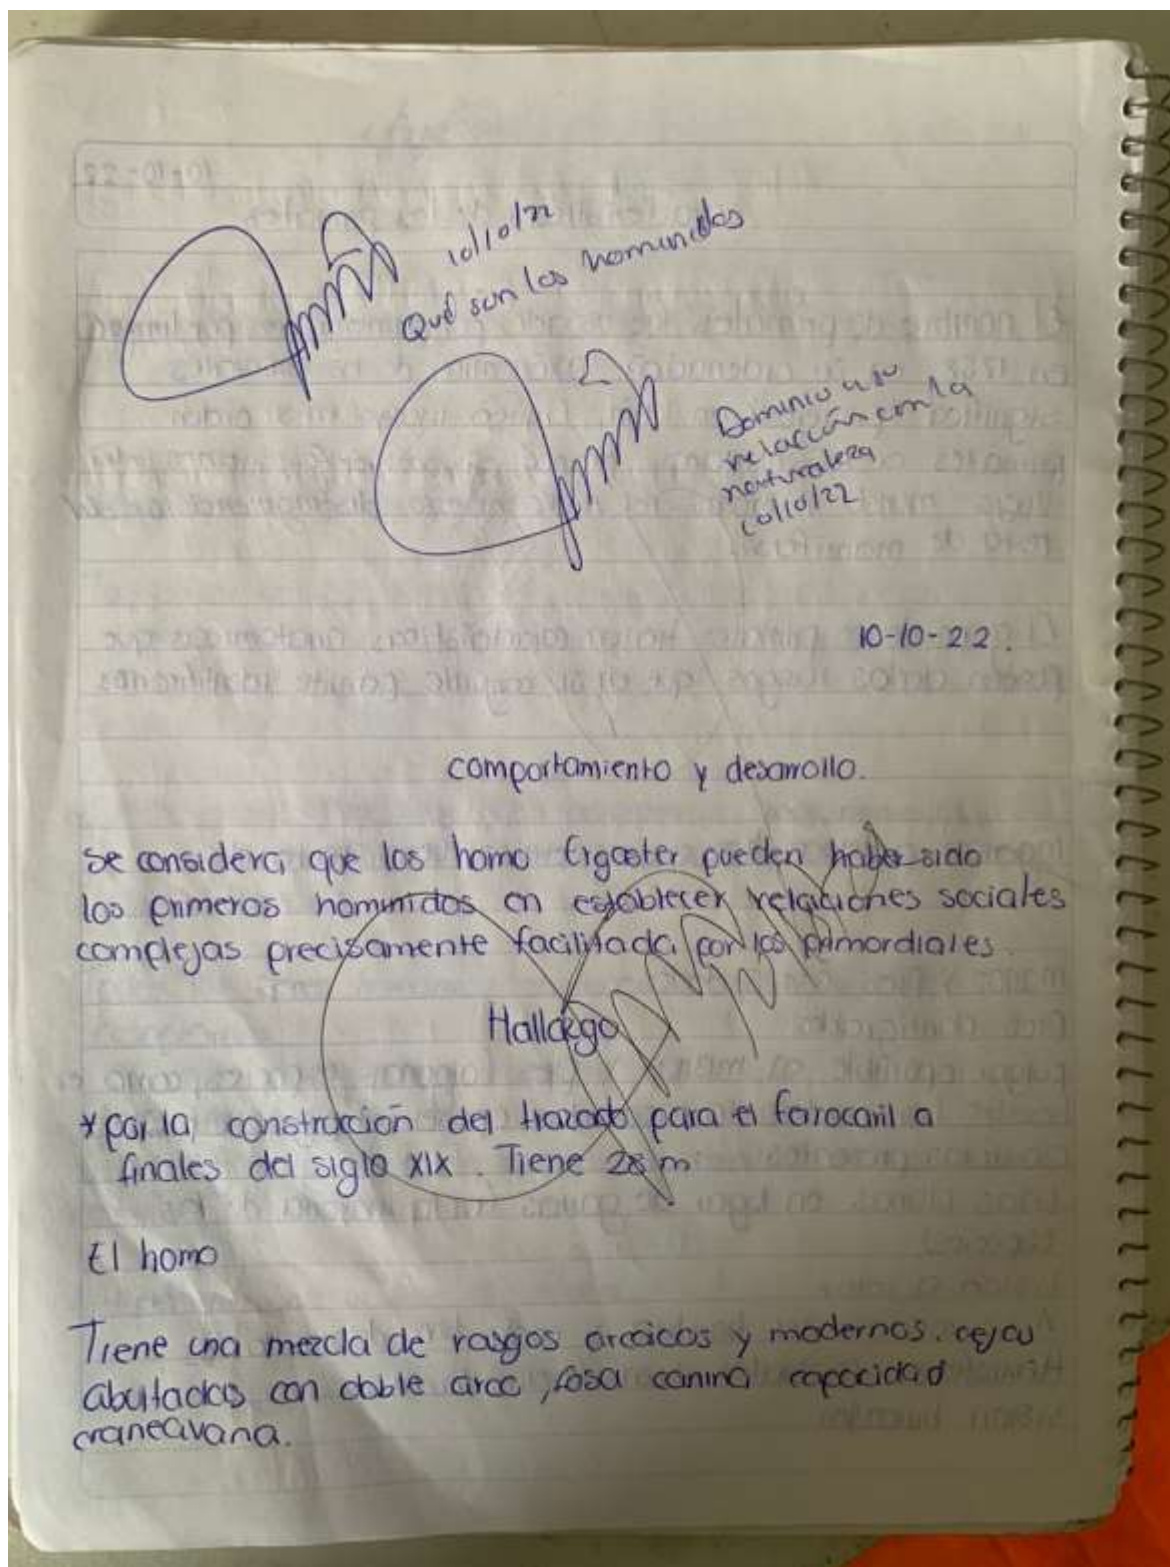 10/10/22
Qué son los hominidos
Dominio a su
relacción con la
naturaleza
10/10/22
10-10-22.
comportamiento y desarrollo.
Se considera que los homo Ergaster pueden haber sido
los primeros hominidos en establecer relaciones sociales
complejas precisamente facilitada por los primordiales.
Hallazgo
* por la construcción del trazado para el ferrocaril a
finales del siglo XIX. Tiene 28 m
El homo
Tiene una mezcla de rasgos arcaicos y modernos. cejas
abultadas con doble arco, fosa canina capacidad
craneavana.